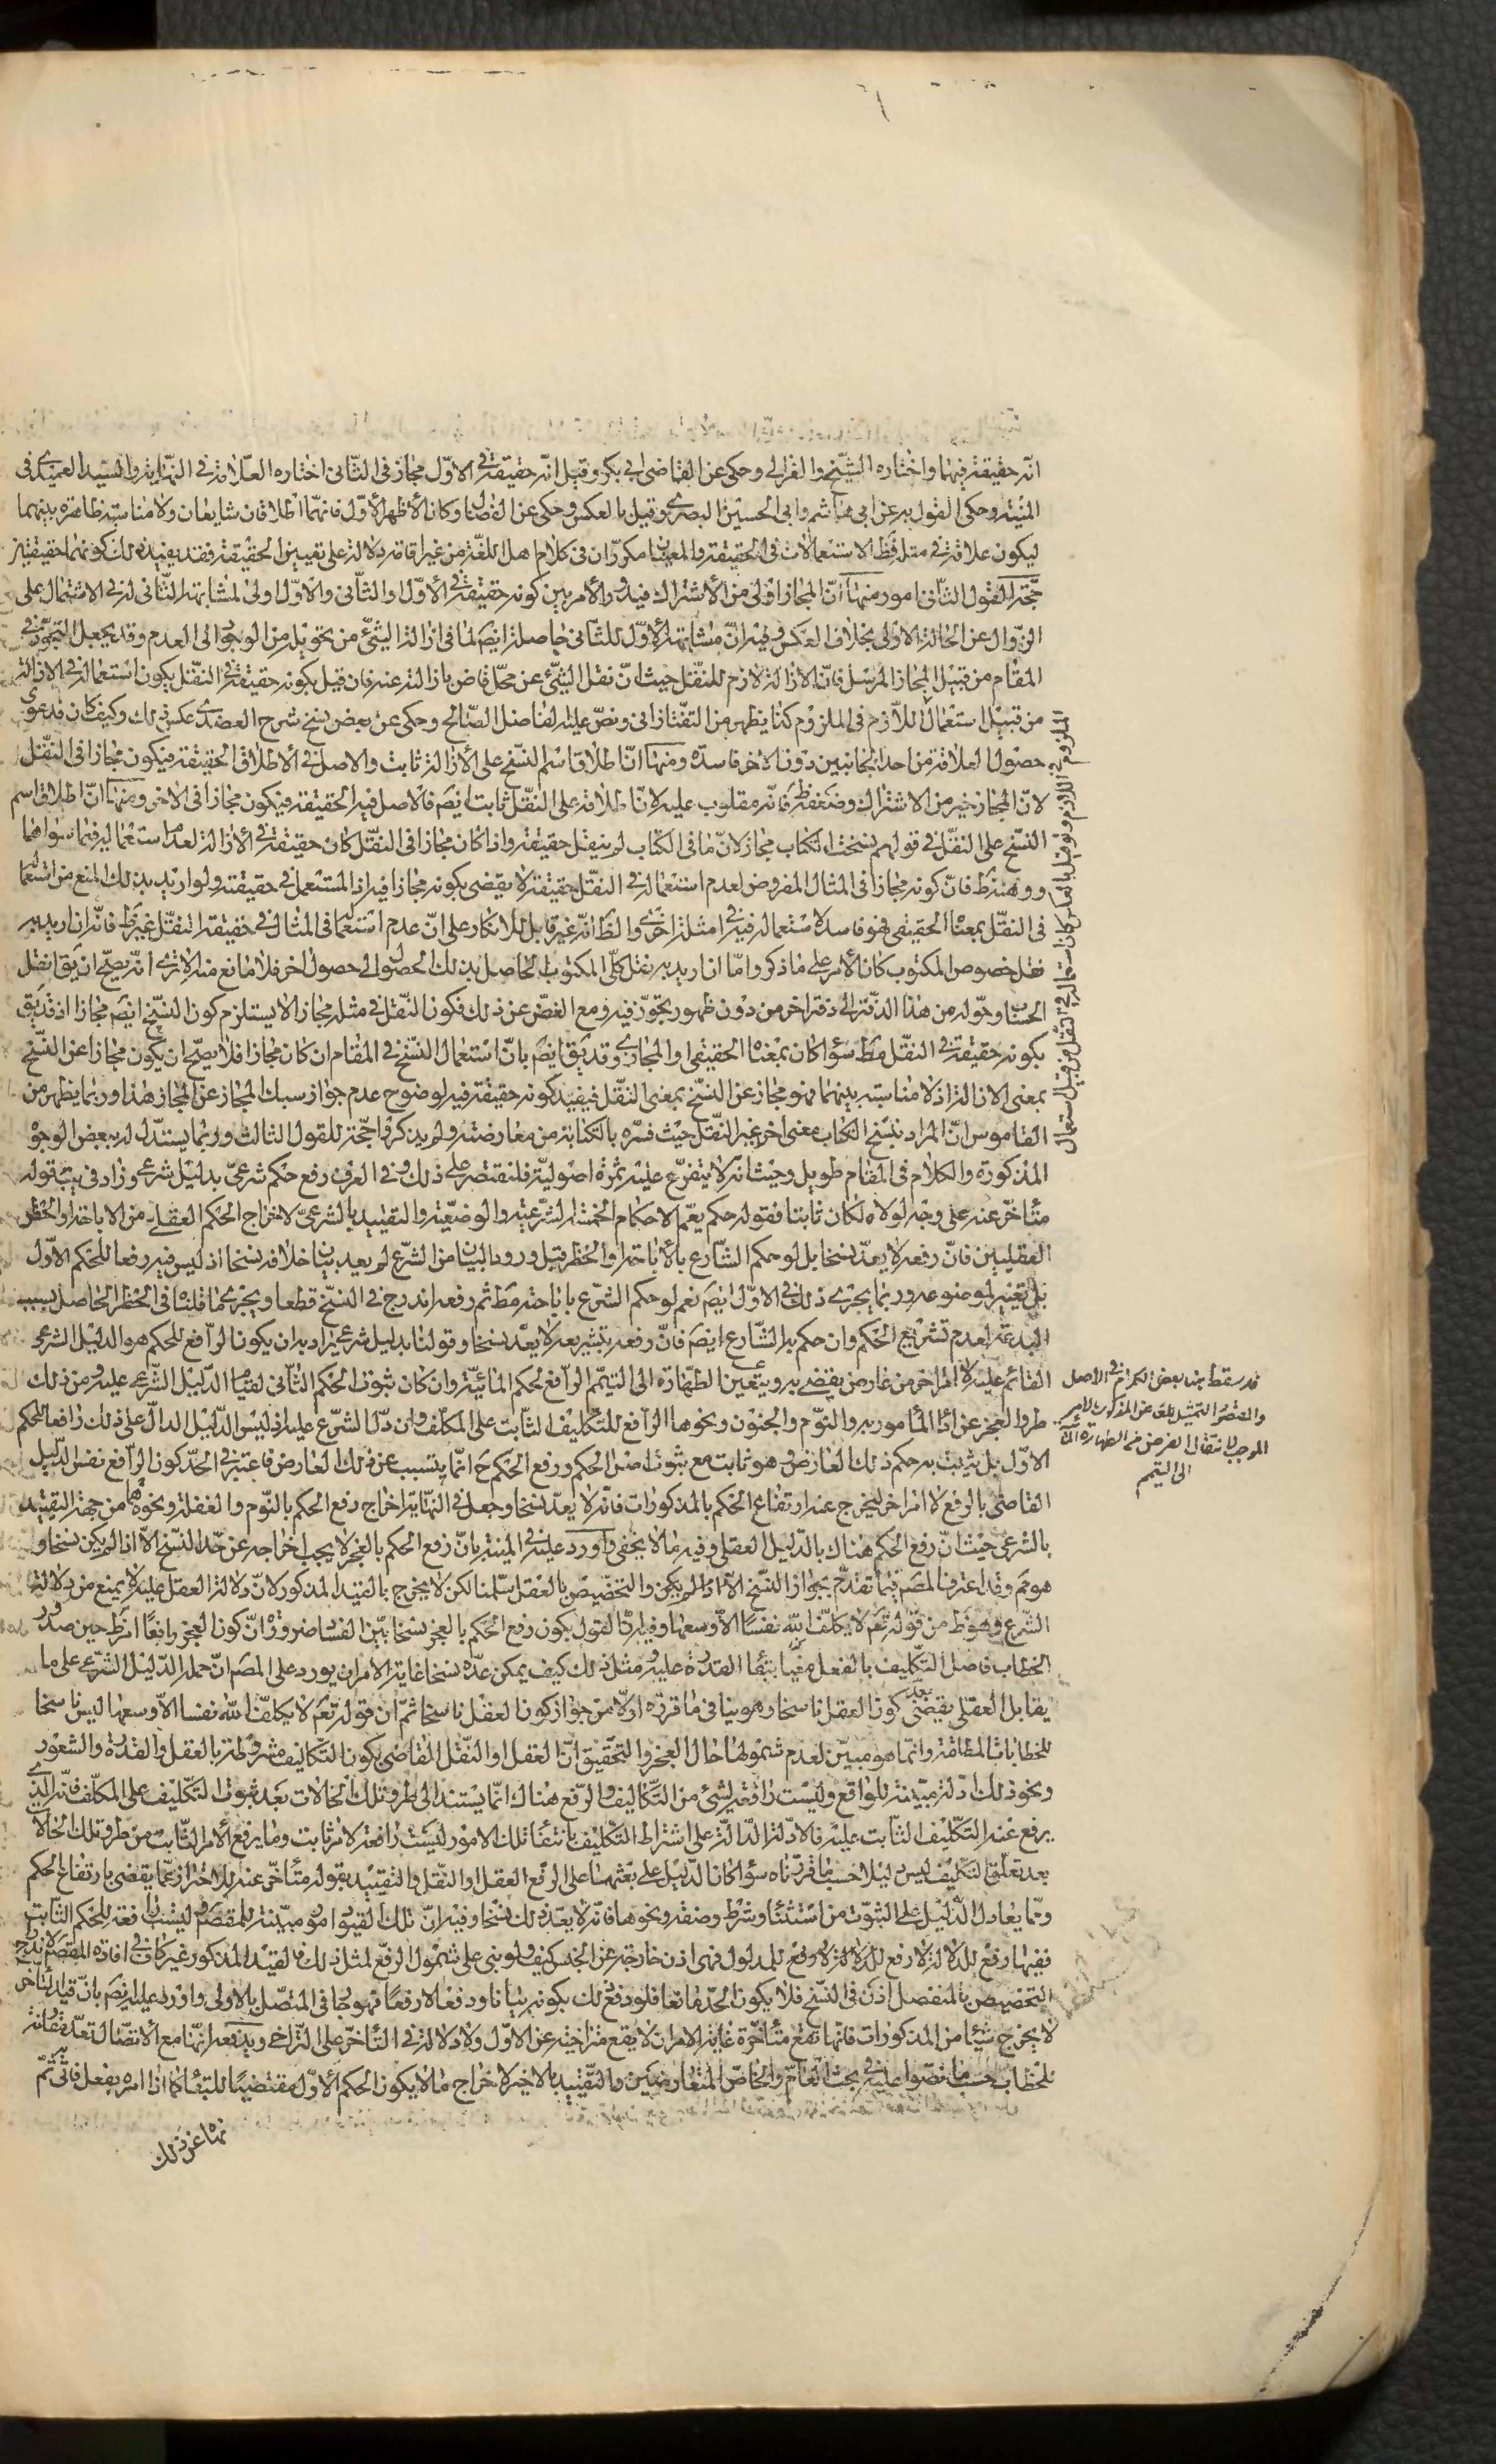 انه حقيقة فيهما واختاره الشيخ والغزالي وحكى عن القاضي ابي بكر وقيل انه حقيقة في الاول مجاز في الثاني اختاره العلامة في النهاية والسيد العميدي في
المنية وحكى القول به عن ابي هاشم وابي الحسين البصري وقيل بالعكس وحكى عن القفال وكان الأظهر الأول فانهما اطلاقان شايعان ولا مناسبة ظاهرة بينهما
ليكون علاقة في مثله فظ الاستعمالات في الحقيقة والمعنيان مكرران في كلام اهل اللغة من غير اقامة دلالة على تعيين الحقيقة فقد يفيد ذلك كونهما حقيقيين
حجة القول الثاني امور منها ان المجاز اولى من الاشتراك فيدور الأمر بين كونه حقيقة في الأول او الثاني والاول اولى لمشابهة الثاني له في الاشتمال على
الزوال عن الحالة الاولى بخلاف العكس وفيه ان مشابهة الأول للثاني حاصلة ايضم لما في ازالة الشيء من تحويله من الوجود الى العدم وقد يجعل التجوز في
المقام من قبيل المجاز المرسل فان الازالة لازم للنقل حيث ان نقل الشيء عن محل قاض بازالته عنه فان قيل بكونه حقيقة في النقل يكون استعماله في الازالة
من قبيل استعمال اللازم في الملزوم كما يظهر من التفتازاني ونص عليه الفاضل الصالح وحكى عن بعض نسخ شرح العضدي عكس ذلك وكيف كان فدعوى
حصول العلاقة من احد الجانبين دون الاخر فاسدة ومنها ان اطلاق اسم النسخ على الأزالة ثابت والاصل في الأطلاق الحقيقة فيكون مجازا في النقل
لان المجاز خير من الاشتراك وضعفه ظ فانه مقلوب عليه لان اطلاقه على النقل ثابت ايضم فالاصل فيه الحقيقة فيكون مجازا في الاخر ومنها ان اطلاق اسم
النسخ على النقل في قولهم نسخت الكتاب مجاز لان ما في الكتاب لم ينقل حقيقة واذا كان مجازا في النقل كان حقيقة في الأزالة لعدم استعماله فيما سواهما
ووهنه ظ فان كونه مجازا في المثال المفروض لعدم استعماله في النقل حقيقة لا يقضي بكونه مجازا فيه اذا المستعمل في حقيقته ولو اريد بذلك المنع من استعماله
في النقل بمعناه الحقيقي فهو فاسد لاستعماله فيه في امثلة اخرى والظ انه غير قابل للانكار على ان عدم استعماله في المثال في حقيقة النقل غير ظ فانه ان اريد به
نقل خصوص المكتوب كان الأمر على ما ذكر واما ان اريد به نقل كلي المكتوب الحاصل بذلك الحصول الى حصول اخر فلا مانع منه الا ترى انه يصح ان يق انقل
الحساب وحوله من هذا الدفتر الى دفتر اخر من دون ظهور تجوز فيه ومع الغض عن ذلك فكون النقل في مثله مجازا لا يستلزم كون النسخ ايضم مجازا اذ قد يق
بكونه حقيقة في النقل مط سواء كان بمعناه الحقيقي او المجازي وقد يق ايضم بان استعمال النسخ في المقام ان كان مجازا فلا يصح ان يكون مجازا عن النسخ
بمعنى الازالة اذ لا مناسبة بينهما فهو مجاز عن النسخ بمعنى النقل فيفيد كونه حقيقة فيه لوضوح عدم جواز سبك المجاز عن المجاز هذا وربما يظهر من
القاموس ان المراد بنسخ الكتاب معنى اخر غير النقل حيث فسره بالكتابة من معارضته ولم يذكروا حجة للقول الثالث وربما يستدل له ببعض الوجوه
المذكورة والكلام في المقام طويل وحيث انه لا يتفرع عليه ثمرة اصولية فلنقتصر على ذلك وفي العرف رفع حكم شرعي بدليل شرعي وزاد في يب قوله
متأخر عنه على وجه لولاه لكان ثابتا فقوله حكم يعم الاحكام الخمسة الشرعية والوضعية والتقييد بالشرعي لاخراج الحكم العقلي من الاباحة والحظر
العقليين فان رفعه لا يعد نسخا بل لو حكم الشارع بالأباحة او الحظر قبل ورود البيان من الشرع لم يعد بيان خلافه نسخا اذ ليس فيه رفعا للحكم الأول
بل تغيير لموضوعه وربما يجري ذلك في الأول ايضم نعم لو حكم الشرع باباحته مط ثم رفعه اندرج في النسخ قطعا ويجري ما قلناه في الحظر الحاصل بسبب
البدعة لعدم تشريع الحكم وان حكم به الشارع ايضم فان رفعه بتشريعه لا يعد نسخا وقولنا بدليل شرعي يراد به ان يكون الرافع للحكم هو الدليل الشرعي
القائم عليه لا امر اخر من عارض يقضي به وبتعين الطهارة الى التيمم الرافع لحكم المائية وان كان ثبوت الحكم الثاني لقيام الدليل الشرعي عليه ومن ذلك
طرو العجز عن اداء المأمور به والنوم والجنون ونحوها الرافع للتكليف الثابت على المكلف وان دل الشرع عليه اذ ليس الدليل الدال على ذلك رافعا للحكم
الاول بل يثبت به حكم ذلك العارض وهو ثابت مع ثبوت اصل الحكم ورفع الحكم ح انما يتسبب عن ذلك العارض فاعتبر في الحد كون الرافع نفس الدليل
القاضي بالرفع لا امر اخر ليخرج عنه ارتفاع الحكم بالمذكورات فانه لا يعد نسخا وجعل في النهاية اخراج رفع الحكم بالنوم والغفلة ونحوهما من جهة التقييد
بالشرعي حيث ان رفع الحكم هناك بالدليل العقلي وفيه ما لا يخفى واورد عليه في المنية بان رفع الحكم بالعجز لا يجب اخراجه عن حد النسخ الا اذا لم يكن نسخا و
هو مم وقد اعترف المصم فيما تقدم بجواز النسخ الا اذا لم يكن والتخصيص بالعقل سلمنا لكن لا يخرج بالقيد المذكور لان دلالة العقل عليه لا يمنع من دلالة
الشرع وهو ظ من قوله تعم لا يكلف الله نفسا الا وسعها وفيه ان القول بكون رفع الحكم بالعجز نسخا بين الفساد ضرورة ان كون العجز رافعا امر ظ حين صدور
الخطاب فاصل التكليف بالفعل مغيا ببقاء القدرة عليه ومثل ذلك كيف يمكن عده نسخا غاية الامر ان يورد على المصم ان حمله الدليل الشرعي على ما
يقابل العقلي يقضي بعد كون العقل ناسخا وهو ينافي ما قرره اولا من جواز كون العقل ناسخا ثم ان قوله تعم لا يكلف الله نفسا الا وسعها ليس ناسخا
للخطابات المطلقة وانما هو مبين لعدم شمولها حال العجز والتحقيق ان العقل او النقل القاضي بكون التكاليف مشروطة بالعقل والقدرة والشعور
ونحو ذلك ادلة مبينة للواقع وليست رافعة لشيء من التكاليف والرفع هناك انما يستند الى طرو تلك الحالات بعد ثبوت التكليف على المكلف فانه الذي
يرفع عنه التكليف الثابت عليه فالادلة الدالة على اشتراط التكليف بانتفاء تلك الامور ليست رافعة لامر ثابت وما يرفع الأمر الثابت من طرو تلك الحالات
بعد تعلق التكليف ليس دليلا حسبما قررناه سواء كان الدليل على بعثها على الرفع العقل او النقل والتقييد بقوله متأخر عنه للاحتراز عما يقضي بارتفاع الحكم
ومما يعادل الدليل على الثبوت من استثناء وشرط وصفة ونحوها فانه لا يعد ذلك نسخا وفيه ان تلك القيود امور مبينة للمقصود وليست رافعة للحكم الثابت
ففيها رفع للدلالة لا رفع للمدلول فهي اذن خارجة عن الجنس كيف ولو بنى على شمول الرفع لمثل ذلك فالقيد المذكور غير كاف في افادة المقصم لاندراج
التخصيص بالمنفصل اذن في النسخ فلا يكون الحد مانعا فلو دفع ذلك بكونه بيانا ودفعا لا رفعا فهو جار في المتصل بالأولى واورد عليه ايضم بان قيد التأخر
لا يخرج شيئا من المذكورات فانها تقع متأخرة غاية الامر ان لا يقع متراخية عن الاول ولا دلالة في التأخر على التراخي ويدفعه انها مع الأتصال تعد مقارنة
للخطاب حسبما نصوا عليه في بحث العام والخاص المتعارضين والتقييد بالاخير لاخراج ما لا يكون الحكم الأول مقتضيا للبقاء كما اذا امره بفعل فاتى به ثم
نهاه عن ذلك
الملزوم في اللازم وقيل بالعكس كان استعماله في النقل من قبيل استعمال
قد سقط من بعض الكرام في الاصل
والمقصود التمثيل بالمذكور الامر
الموجب لانتقال الفرض من الطهارة المائية
الى التيمم